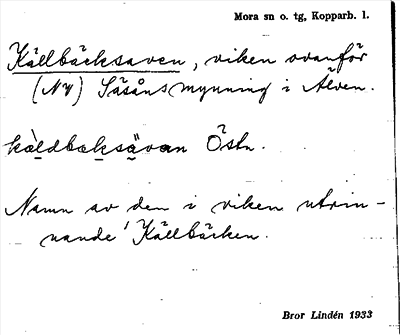 Mora sn o. tg, Kopparb. l.
Källbäcksaven, viken ovanför
(NV) Säsåns mynning i Älven.
kàldbəksävan Östn.
Namn av den i viken utrin-
nande Källbäcken.
Bror Lindén 1933